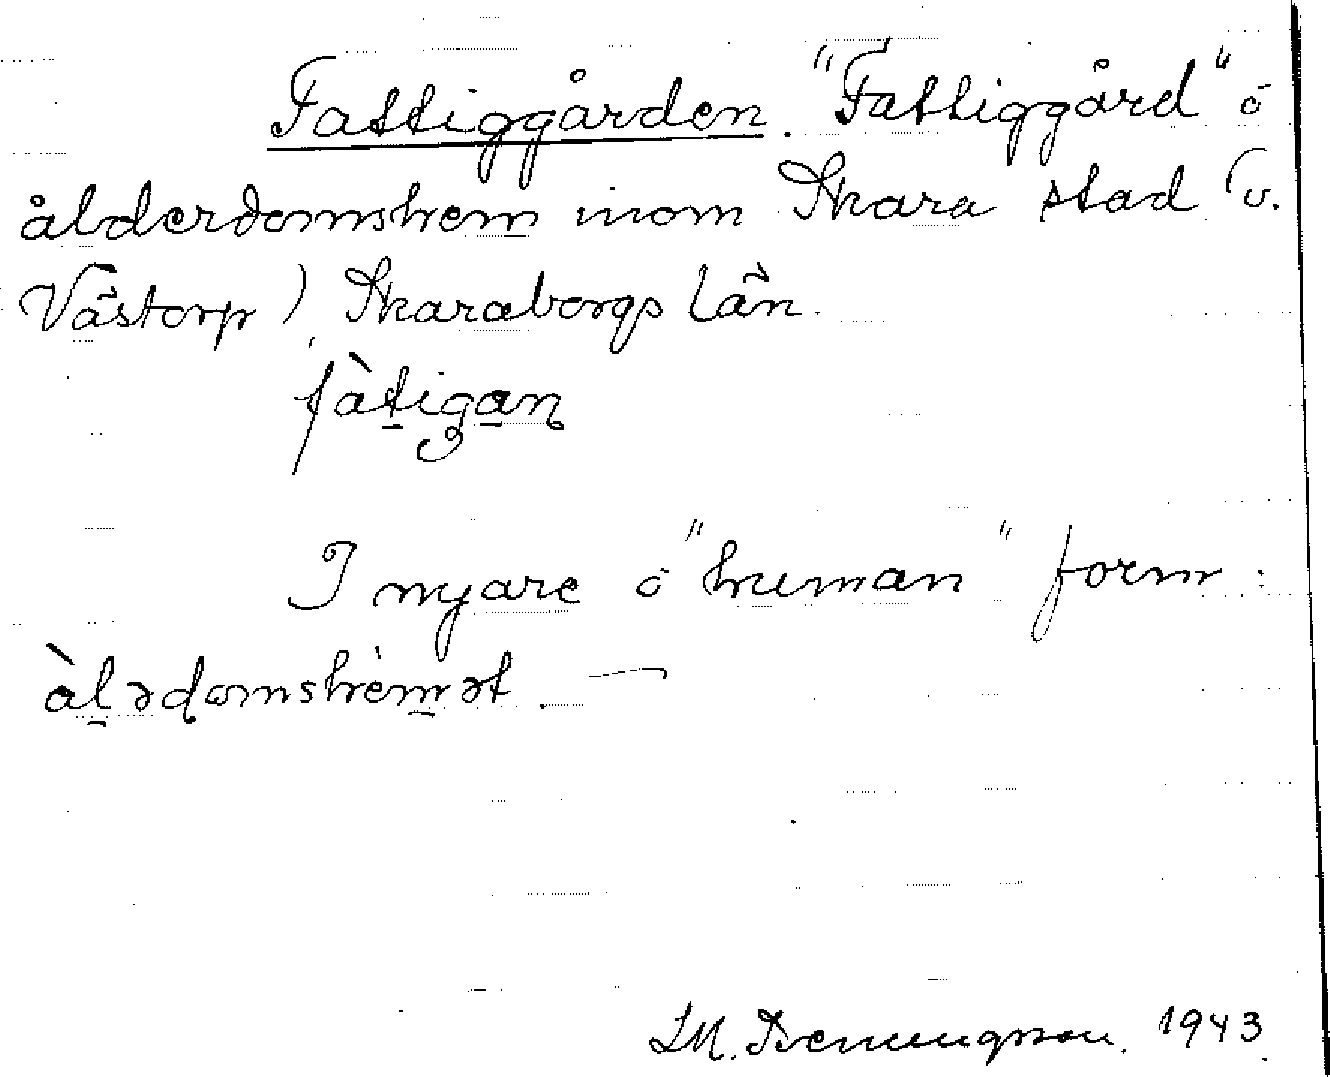 Fattiggården. "Fattiggård" o
ålderdomshem inom Skara stad (v.
Västorp) Skaraborgs län.
fàtigan
I nyare o "human" form:
àlədomshèmət. —
1943